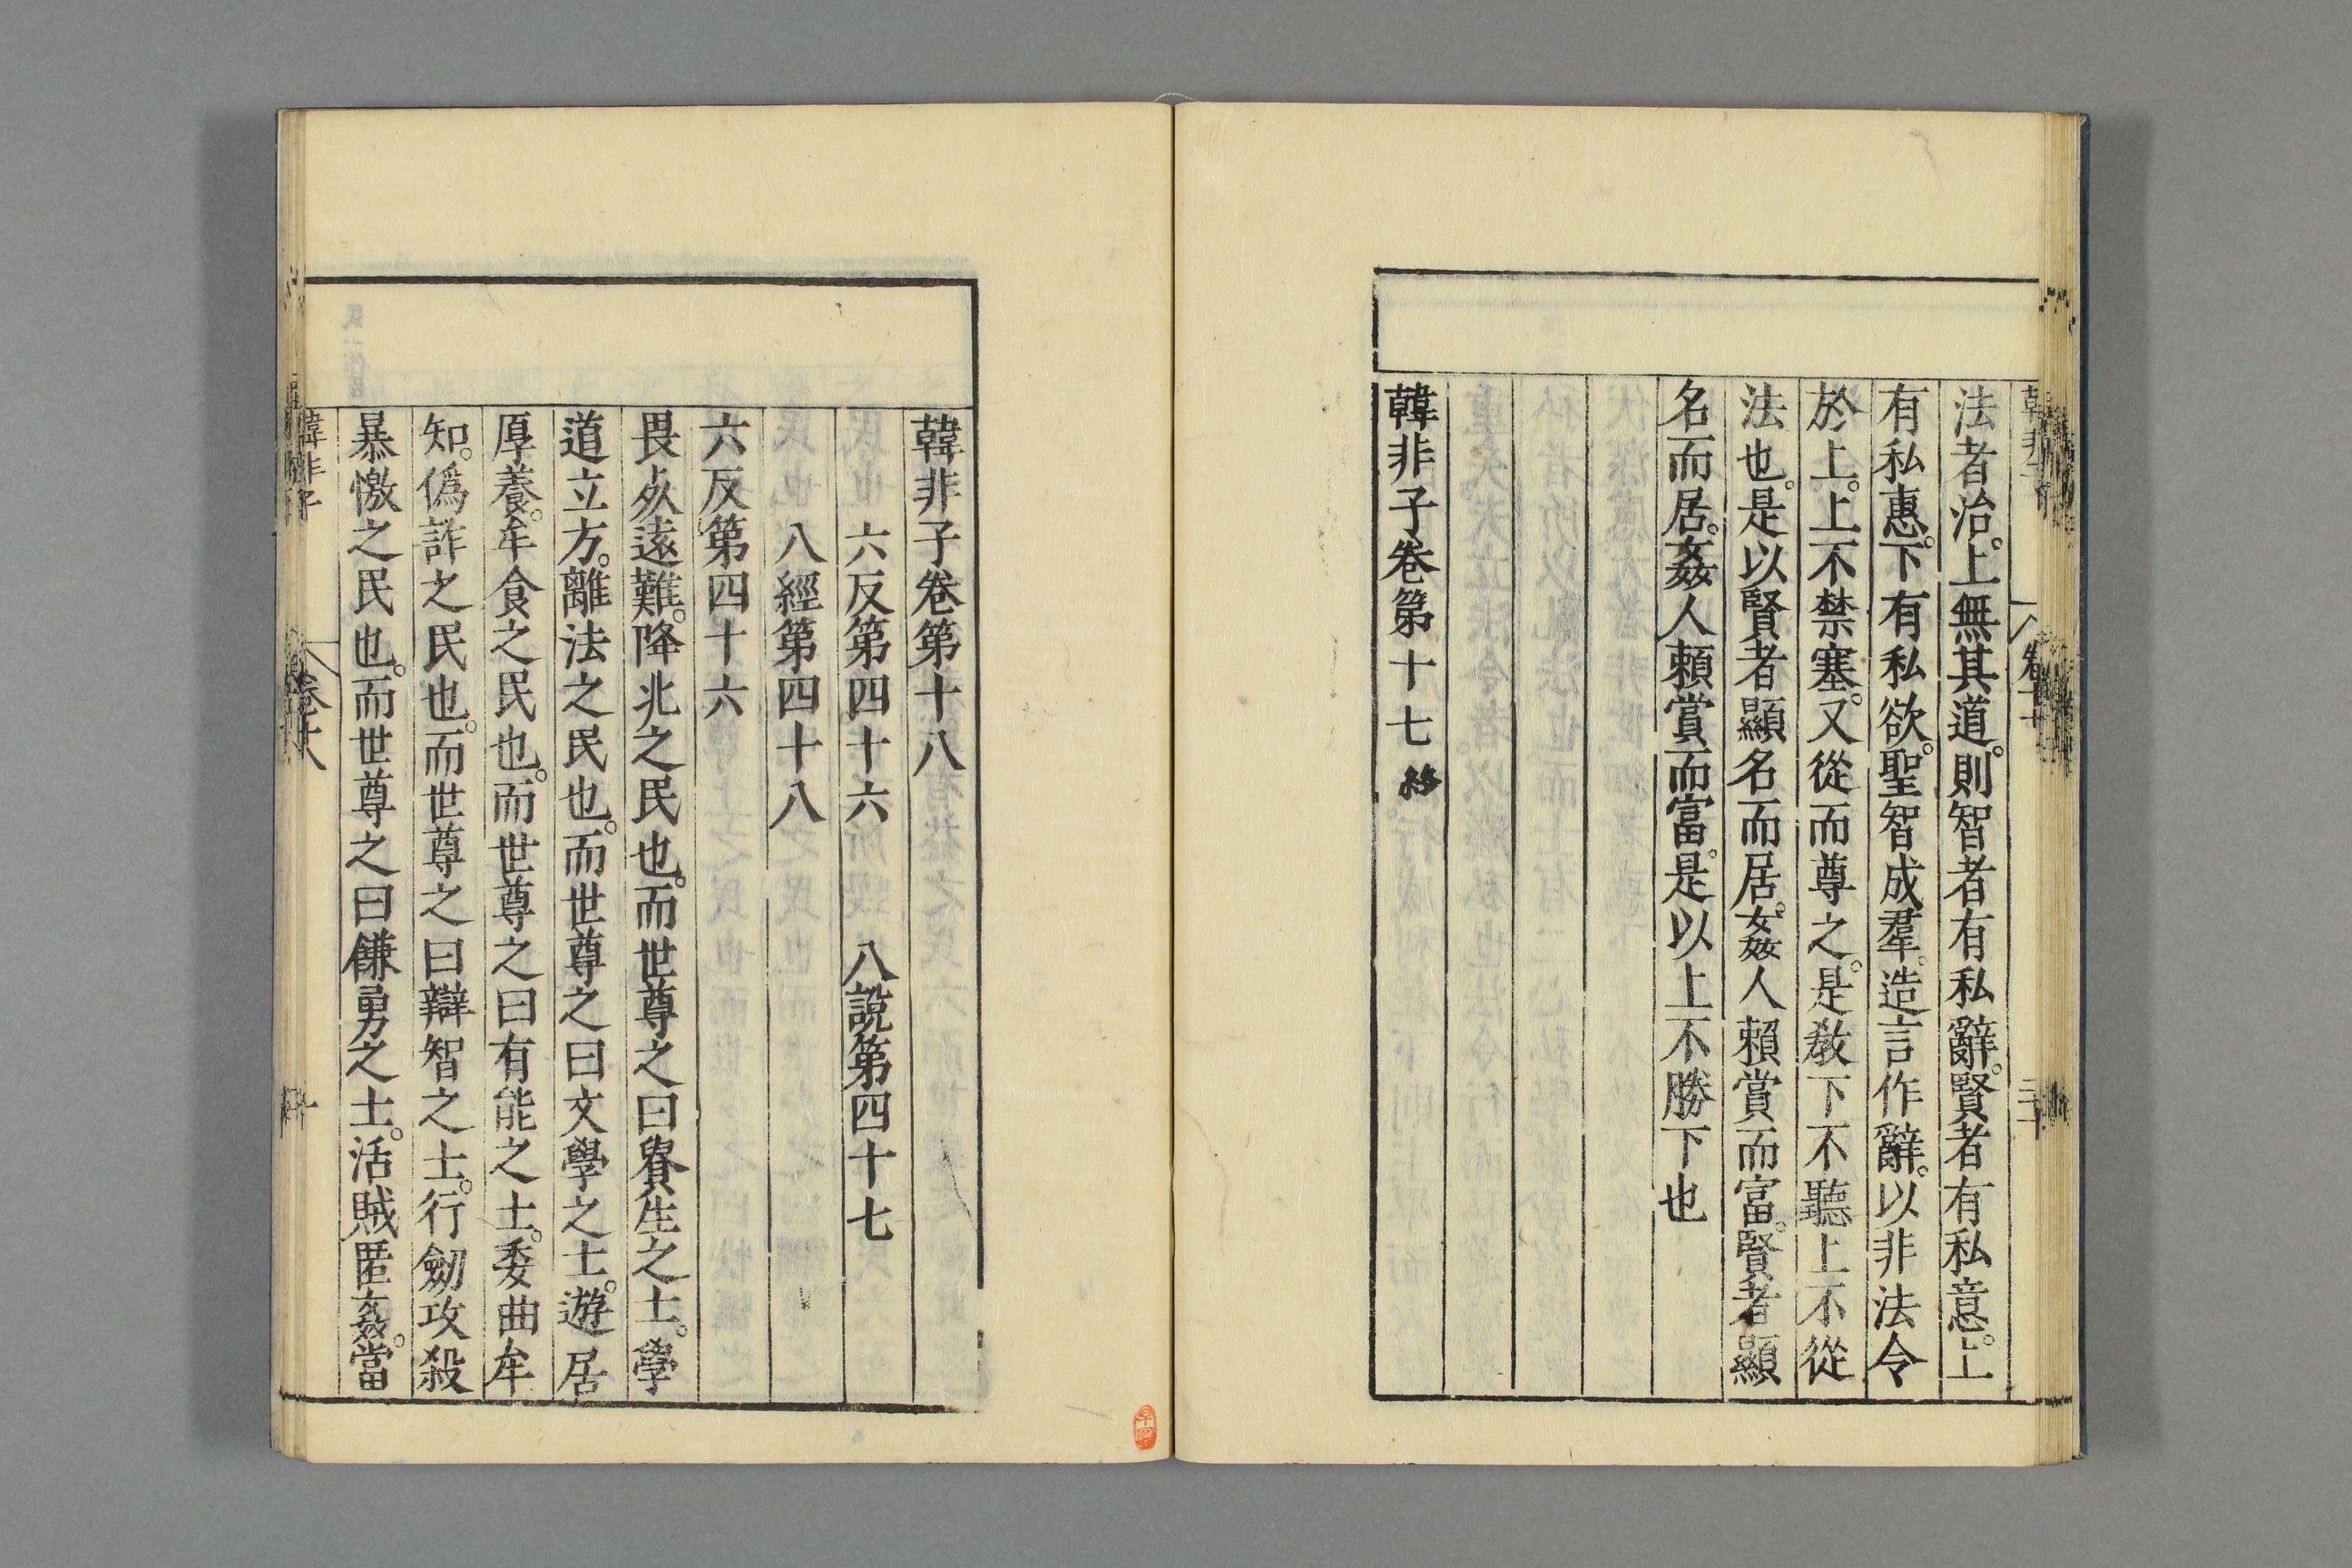 法者治。上無其道。則智者有私辭。賢者有私意。上
有私惠。下有私欲。聖智成羣。造言作辭。以非法令
於上。上不禁塞。又從而尊之。是敎下不聽上不從
法也。是以賢者顯名而居。姦人賴賞而富。賢者顯
名而居。姦人賴賞而富。是以上不勝下也
韓非子卷第十七終
韓非子卷第十八
六反第四十六 八說第四十七
八經第四十八
六反第四十六
畏死遠難。降北之民也。而世尊之曰貴生之士。學
道立方。離法之民也。而世尊之曰文學之士。遊居
厚養。牟食之民也。而世尊之曰有能之士。委曲牟
知。僞詐之民也。而世尊之曰辯智之士。行劒攻殺
暴憿之民也。而世尊之曰鎌勇之士。活賊匿姦。當
韓非子 卷十八